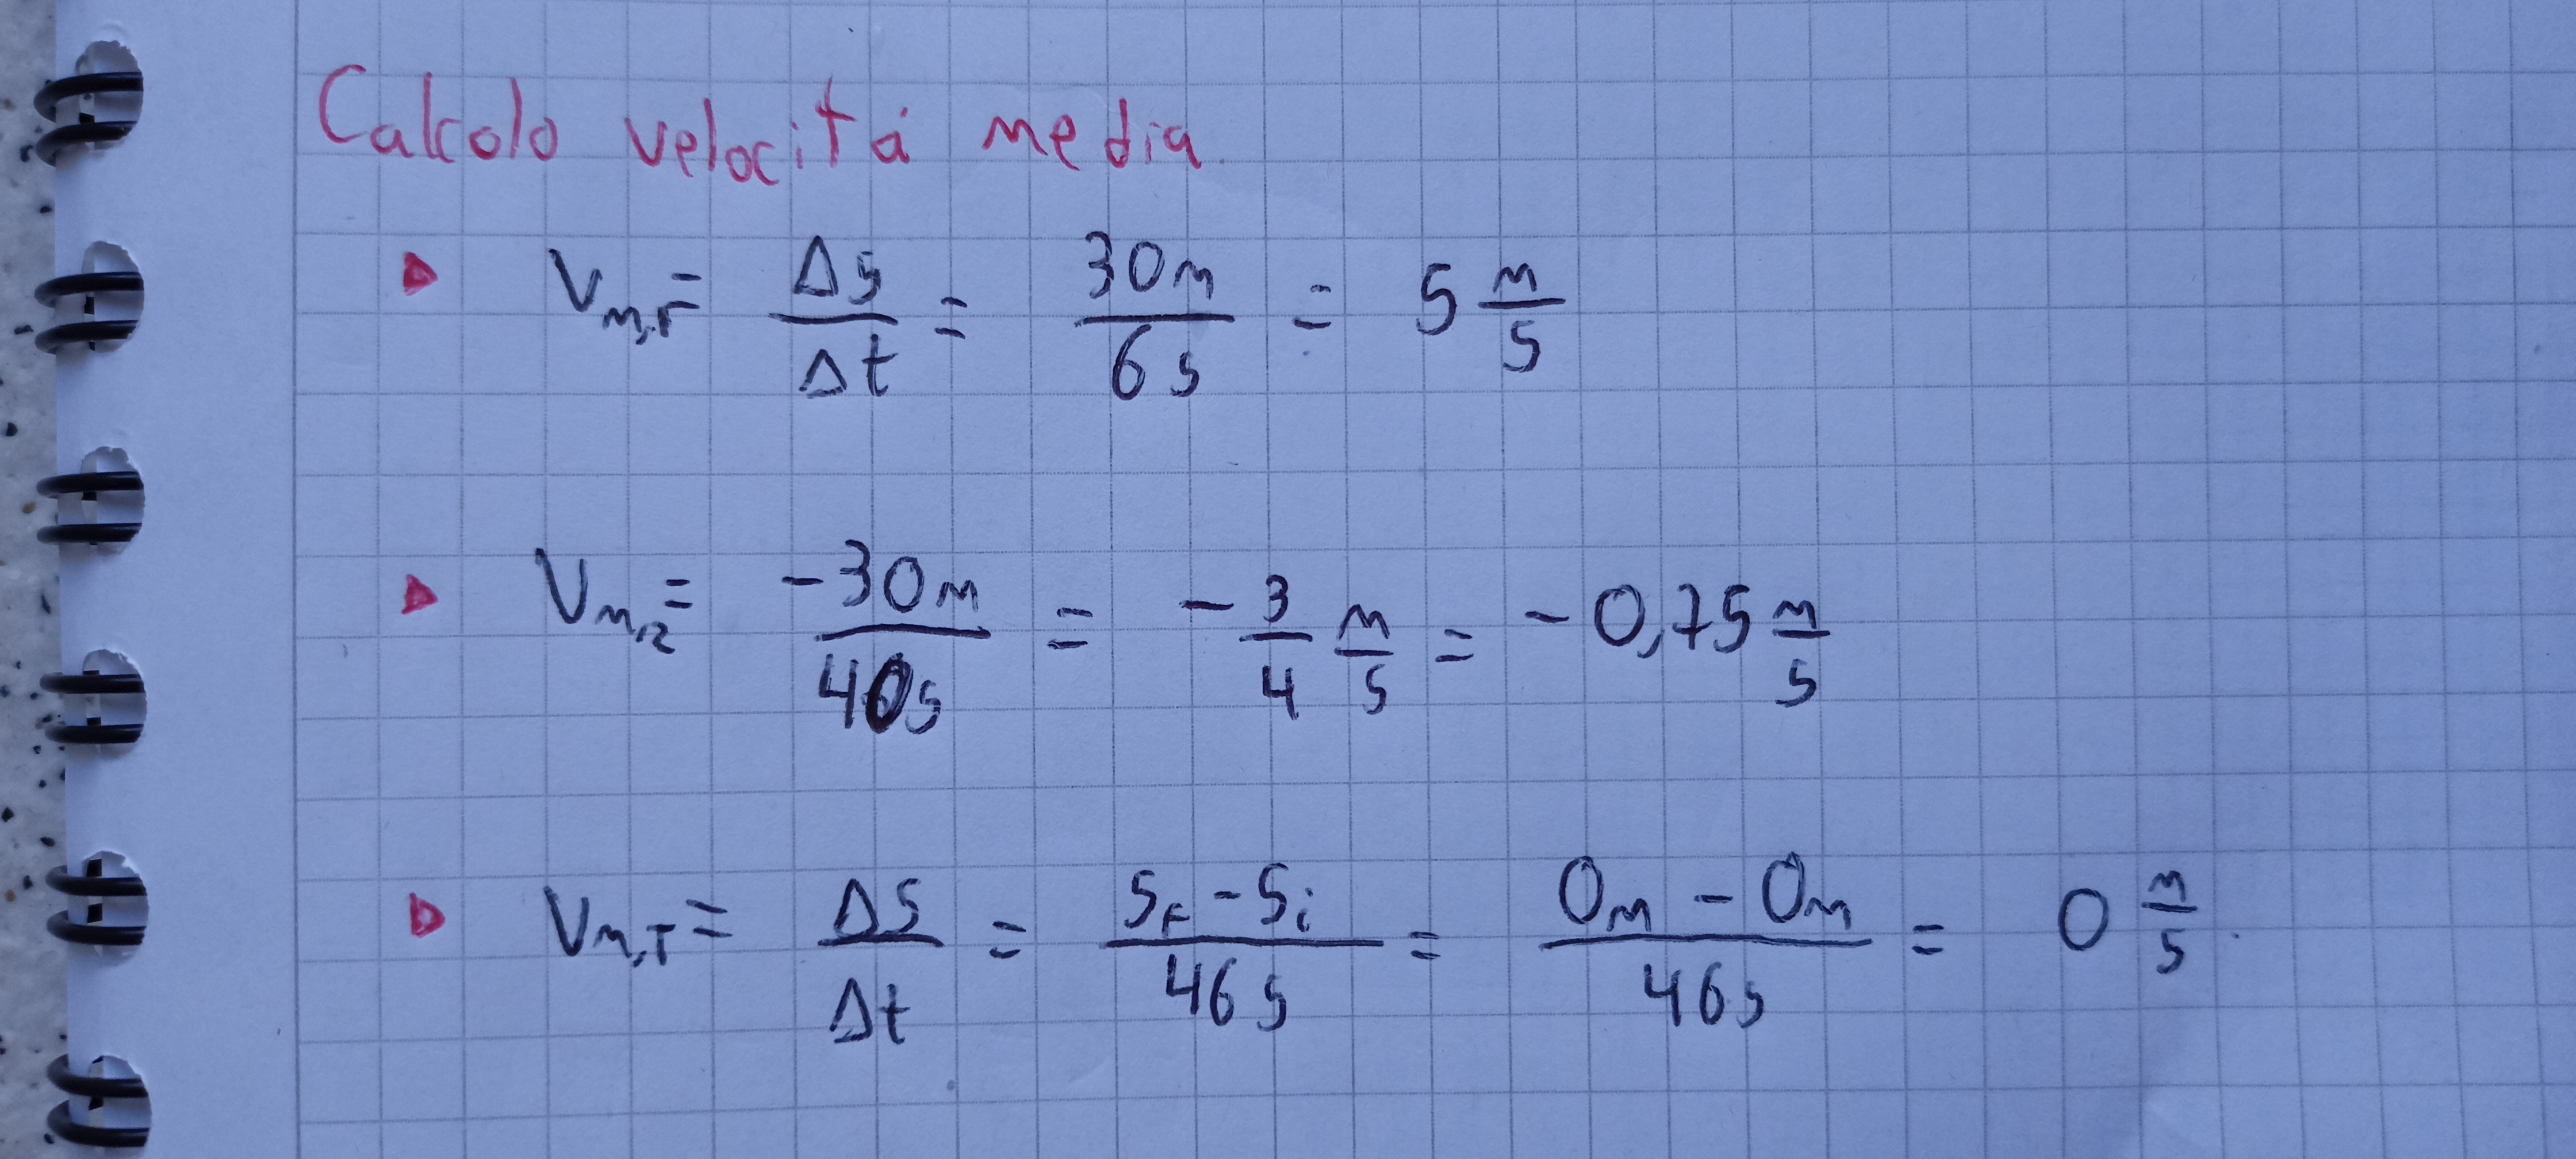 Calcolo velocitá media.
▷ Vm,r = Δs/Δt = 30m/6s = 5 m/s
▷ Vm,2 = -30m/40s = -3/4 m/s = -0,75 m/s
▷ Vm,T = Δs/Δt = (SF - Si)/46s = (0m - 0m)/46s = 0 m/s.